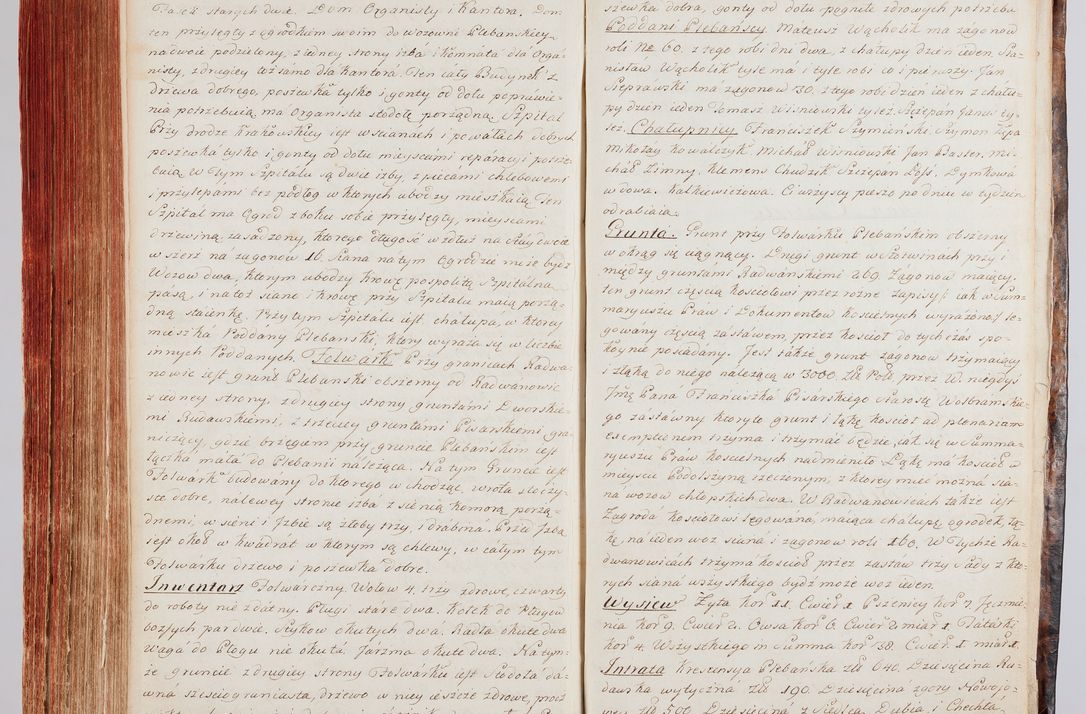 Tareż starych dwie. Dom Organisty i Kantora. Dom
ten przyległy z ogródkiem swoim do wozowni Plebanskiey
na dwoie podzielony, z iedney strony izba i komnata dla Orga-
nisty, z drugiey toż samo dla Kantora. Ten cały Budynek z
drzewa dobrego, poszewka tylko i gonty od dołu poprawie-
nia potrzebuią, ma Organista stodołę porządną. Szpital
Przy drodze Krakowskiey iest w scianach i powałach dobrych
poszewka tylko i gonty od dołu mieyscami reparacyi potrze-
buią. W tym Szpitalu są dwie izby z piecami chlebowemi
i przylepami bez podłog w ktorych ubodzy mieszkaią. Ten
Szpital ma Ogrod z boku sobie przyległy, mieyscami
drzewiną zasadzony, ktorego długość wzdłuż na Stay dwoie
w szerz na zagonow 16. Siana na tym Ogrodzie może bydź
Wozow dwa, ktorym ubodzy krowę pospolitą Szpitalną
pasą, i na toż siano i krowę przy Szpitalu maią porzą-
dną staienkę. Przy tym Szpitalu iest chałupa, w ktorey
mieszka Poddany Plebanski, ktory wyraża się w liczbie
innych Poddanych. Folwark Przy granicach Radwa-
nowic iest grunt Plebanski obszerny od Radwanowic
z iedney strony, z drugiey strony gruntami Dworskie-
mi Rudawskiemi, z trzeciey gruntami Pisarskiemi gra-
niczący, gdzie brzegam przy gruncie Plebanskim iest
łączka mała do Plebanii należąca. Na tym Gruncie iest
Folwark budowany do ktorego wchodząc, wrota stoiący-
sce dobre, na lewey stronie izba z sienią komora porzą-
dnemi, w sieni i Izbie są żłoby trzy, i drabina. Przy Izbie
iest okoł w kwadrat w ktorym są chlewy, w całym tym
Folwarku drzewo i poszewka dobre.
Inwentarz Folwarczny. Wołow 4. trzy zdrowe, czwarty
do roboty nie zdatny. Pługi stare dwa. Kolek do Pługow
bossych par dwie. Zrykow okutych dwa. Radła okute dwa
waga do Pługu nie okuta. Jarzma okute dwa. Na tym-
że gruncie z drugiey strony Folwarku iest Stodoła da-
wna sześciograniasta, drzewo w niey ieszcze zdrowe, procz
szewka dobra, gonty od dołu pogniłe zdrowych potrzebu
Poddani Plebańscy. Mateusz Wącholik ma zagonow
roli Nro 60. z tego robi dni dwa, z chałupy dzień ieden. Sta-
nisław Wącholik tyle ma i tyle robi co i pierwszy. Jan
Sieprawski ma zagonow 30. z tego robi dzień ieden z chału-
py dzień ieden. Tomasz Wisniowski tyleż. Szczepan Janus ty-
leż. Chałupnicy Franciszek Szymiński. Szymon Szpa
Mikołay Kowalczyk. Michał Wisniowski. Jan Baster. Mi-
chał Zimny. Klemens Chudzik. Szczepan Loss. Dymkowa
wdowa. Kałkiewiczowa. Ci wszyscy pieszo po dniu w tydzień
odrabiaią.
Grunta. Grunt przy Folwarku Plebańskim obszerny
w okrąg się ciągnący. Drugi grunt w Chotowinach przy i
między gruntami Radwańskiemi 260. Zagonow maiący.
ten grunt częscią kosciołowi przez rożne zapisy/: iak w Sum-
maryuszu Praw i Dokumentow Koscielnych wyrażono :/ le-
gowany częscią zastawem przez kościoł do tychczas spo-
koynie posiadany. Jest także grunt zagonow trzymaiący
i łąką do niego należącą w 3000. Złł Pol: przez W. niegdys
Jmć Pana Franciszka Pisarskiego Starostę Wolbramskie-
go zastawny ktoryto grunt i łąkę kościoł ad plenariam
exemptionem trzyma i trzymać będzie, iak się w Summa-
ryuszu Praw koscielnych nadmieniło. Łąkę ma kościoł w
mieyscu Podolszyną rzeczonym, z ktorey mieć można sia-
na wozow chłopskich dwa. W Radwanowicach także iest
Zagroda kościołowi legowana, maiąca chałupę ogrodek, łą-
kę na ieden woz siana i zagonow roli 160. W Tychże Ra-
dwanowicach trzyma kościoł przez zastaw trzy Sady z kto-
rych siana wszystkiego bydź może woz ieden.
Wysiew Żyta Kor 11. Cwier 1 Pszenicy Kor 7. Jęczmie-
nia Kor 9. Cwier 2. Owsa Kor 6. Cwier 2 miar 1. Tatarki
Kor 4. Wszystkiego in Summa Kor 38. Cwier 1 miar 1.
Intrata Krescensya Plebańska Złł 640. Dziesięcina Ru-
dawska wytyczna Złł 190. Dziesięcina zgory Nowojo-
wey Złł 500. Dziesięcina z Siedlca, Dubia i Chechła